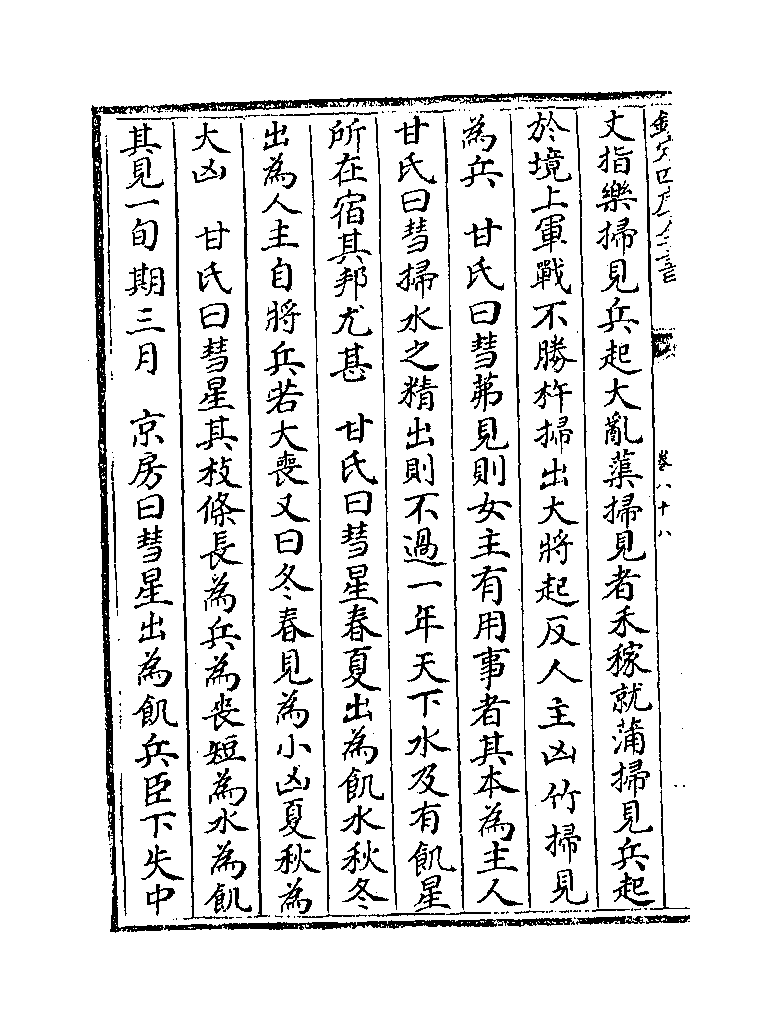 欽定四庫全書 卷八十八
丈指樂掃見兵起大亂蕖掃見者禾稼就蒲掃見兵起
於境上軍戰不勝杵掃出大將起反人主凶竹掃見
為兵 甘氏曰彗茀見則女主有用事者其本為主人
甘氏曰彗掃水之精出則不過一年天下水及有飢星
所在宿其邦尤甚 甘氏曰彗星春夏出為飢水秋冬
出為人主自將兵若大喪又曰冬春見為小凶夏秋為
大凶 甘氏曰彗星其枝條長為兵為喪短為水為飢
其見一旬期三月 京房曰彗星出為飢兵臣下失中